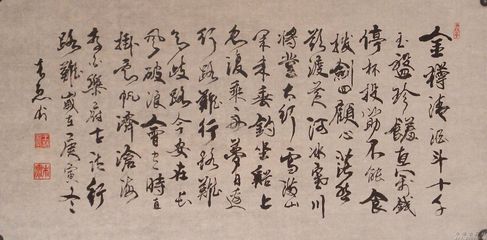 金樽清酒斗十千
玉盤珍饈直萬錢
停杯投筯不能食
拔劍四顧心茫然
欲渡黄河冰塞川
將登太行雪滿山
閒来垂釣坐谿上
忽復乘舟夢日邊
行路難行路難
多歧路今安在長
風破浪會有時直
掛雲帆濟滄海
李白樂府古詩行
路難歲在庚寅冬